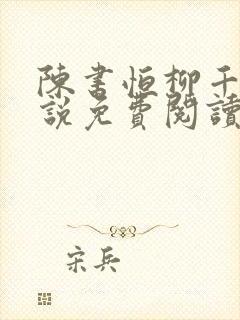 陳書恒柳千
說免費閱讀
宋兵